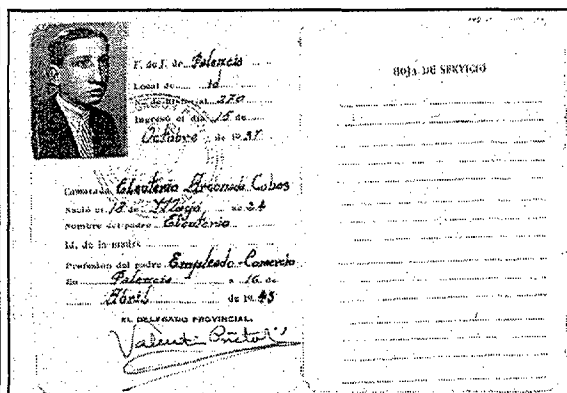 F. de J. de Palencia
Local de id
Nº de historial 270
Ingresó el día 15 de
Octubre de 19 37
Camarada Eleuterio Arconada Cobos
Nació el 18 de Mayo de 24
Nombre del padre Eleuterio
Id. de la madre
Profesión del padre Empleado-Comercio
En Palencia a 16 de
Abril de 19 43
EL DELEGADO PROVINCIAL,
HOJA DE SERVICIO